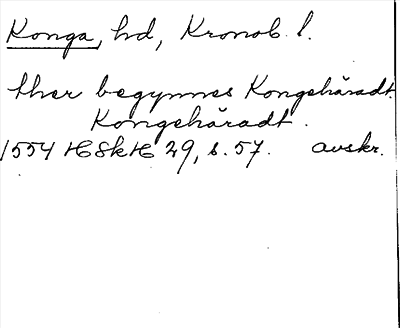 Konga, hd, Kronob. l.
ther begynnes Kongehäradt.
Kongehäradt.
1554 HSkH 29, s. 57. avskr.